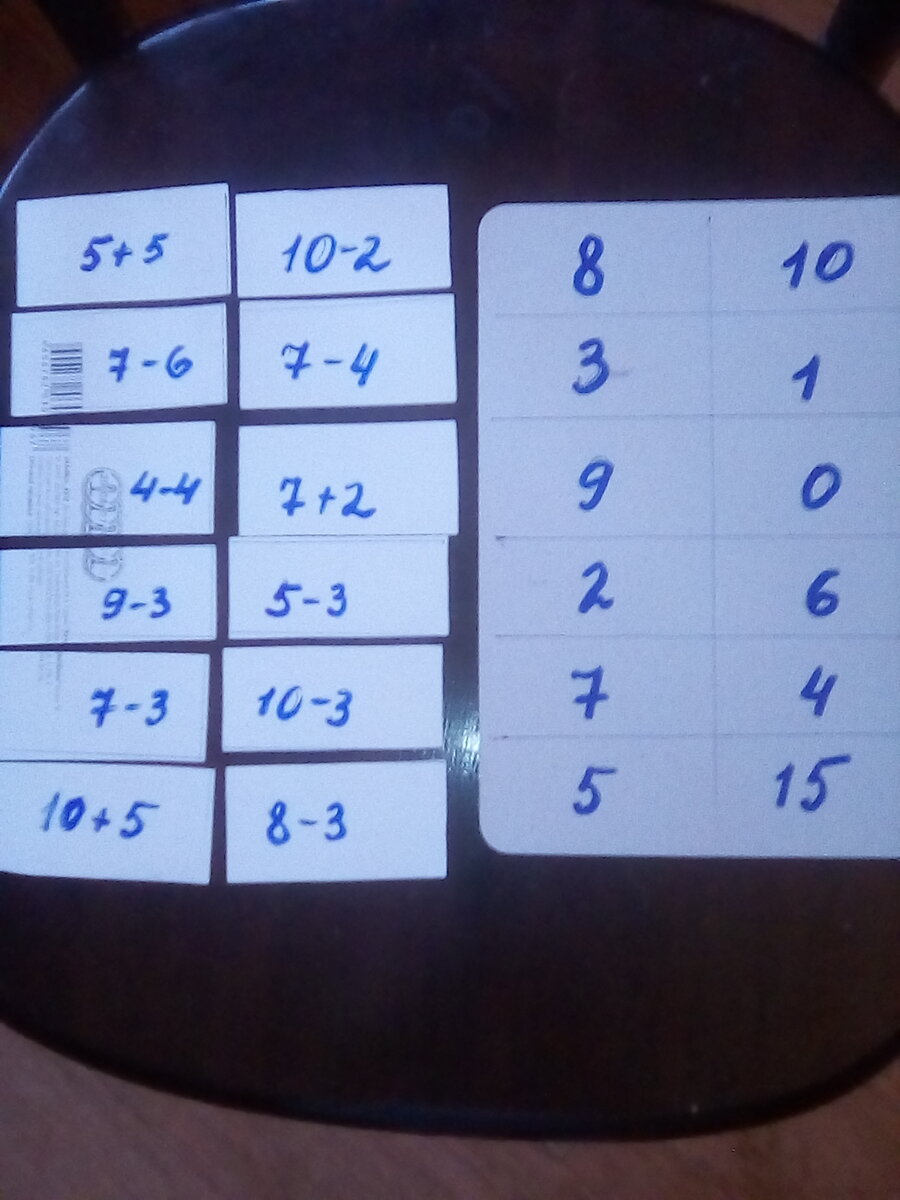 5+5 10-2
7-6 7-4
4-4 7+2
9-3 5-3
7-3 10-3
10+5 8-3
8 10
3 1
9 0
2 6
7 4
5 15